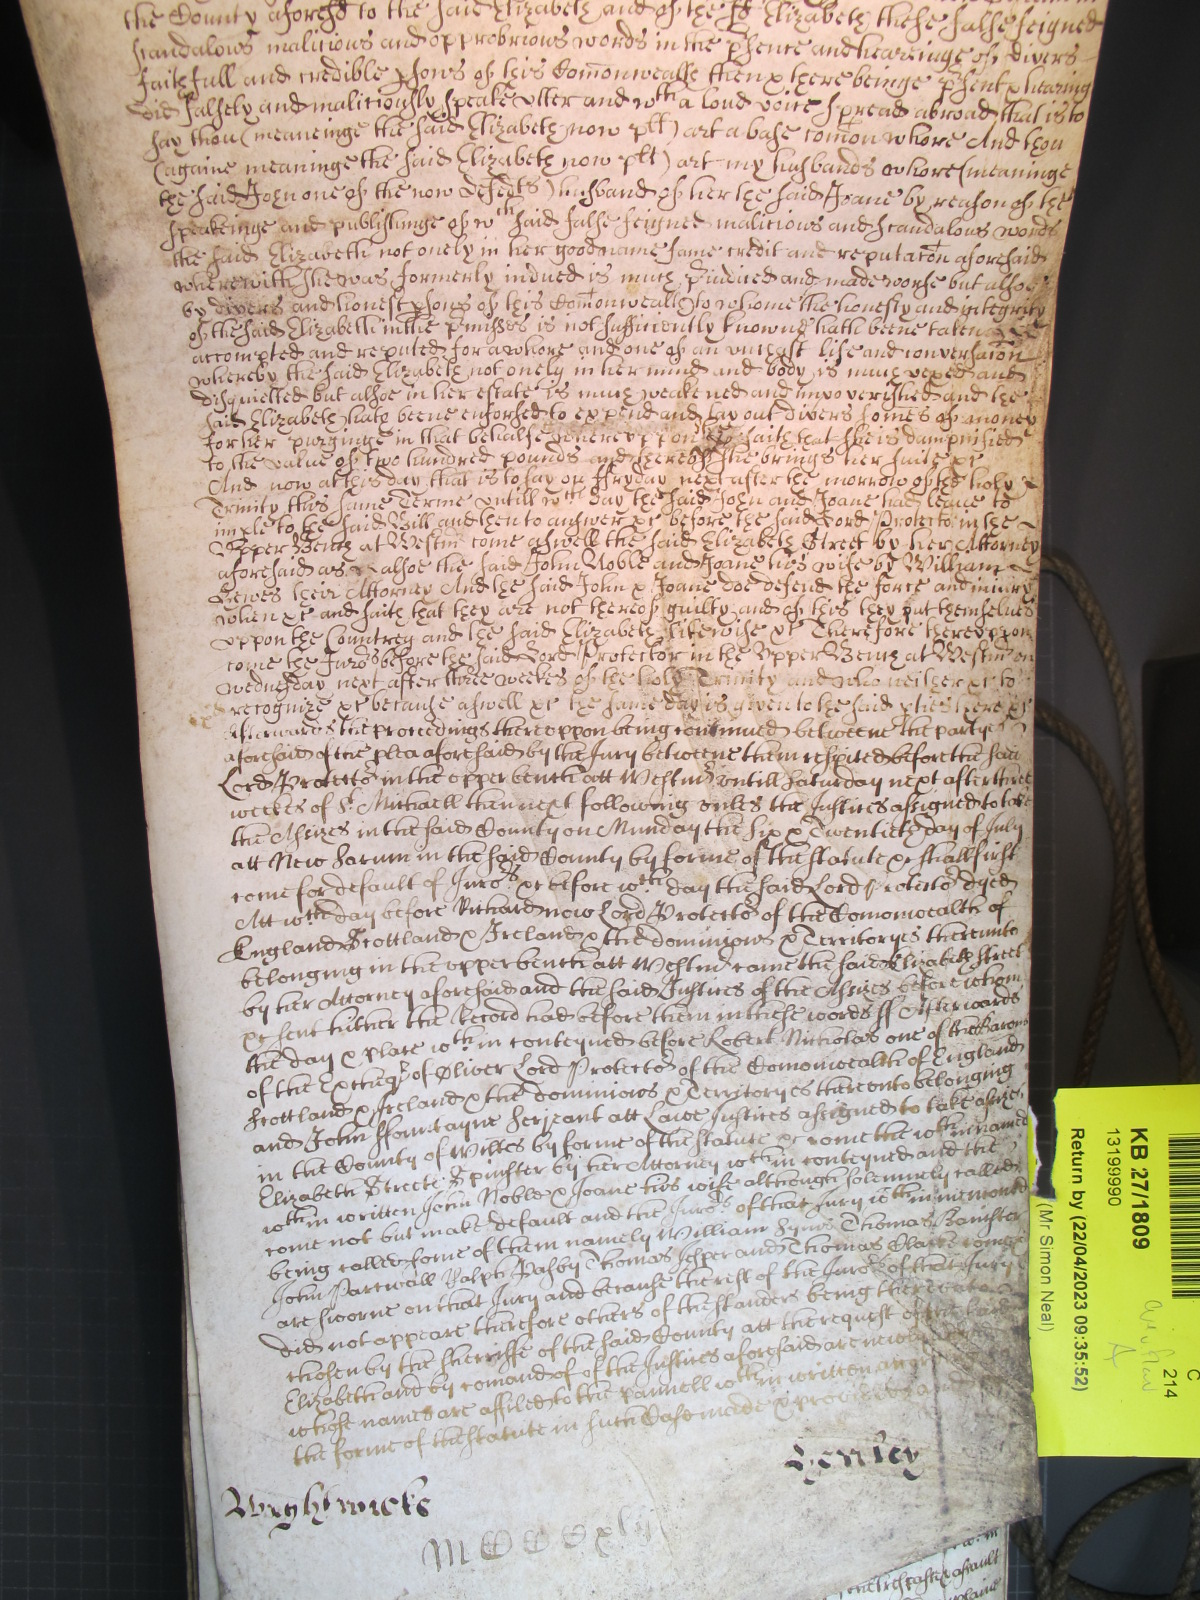 the County aforesd to the said Elizabeth and of the sd Elizabeth these false feigned
scandalous malicious and opprobrious words in the psence and heareinge of divers
faithfull and credible psons of this Comonwealth then & there beinge psent & hearing
did falsely and maliciously speake utter and wth a loud voice spread abroad that is to
say thou (meaneinge the said Elizabeth now plt) art a base comon whore And thou
(againe meaninge the said Elizabeth now plt) art my husbands whore (meaninge
the said John one of the now defedts) husband of her the said Joane by reason of the
speakeinge and publishinge of wch said false feigned malicious and scandalous words
the said Elizabeth not onely in her good name fame credit and reputacon aforesaid
wherewith she was formerly indued is much and made worse but alsoe
by divers and honest psons of this Comonwealth to whome the honesty and integrity
of the said Elizabeth in the pmisses is not sufficiently knowne hath beene taken
accompted and reputed for a whore and one of an unchast life and conversacon
whereby the said Elizabeth not onely in her mind and body is much vexed and
disquietted but alsoe in her estate is much weakened and impoverished and the
said Elizabeth hath beene enforsed to expend and lay out divers somes of money
for her purginge in that behalfe whereuppon she saith that she is dampnified
to the value of two hundred pounds and thereof she brings her suite &c
And now at this day that is to say on ffryday next after the morrow of the holy
Trinity this same Terme untill wch day the said John and Joane had leave to
imple to the said Bill and then to answer &c before the said Lord Protector in the
Upper Bench at Westm come aswell the said Elizabeth Street by her Attorney
aforesaid as alsoe the said John Noble and Joane his wife by William
Hewes their Attorney And the said John & Joane doe defend the force and iniury
when &c and saith that they are not thereof guilty and of this they put themselves
uppon the Countrey and the said Elizabeth likewise &c Therefore thereuppon
come the Jurors before the said Lord Protector in the Upper Bench at Westm on
wednesday next after three weekes of the holy Trinity and who neither &c to
recognize &c because aswell &c the same day is given to the said pties there &c
Afterwards the proceedings thereoppon being continued betweene the partyes
aforesaid of the plea aforesaid by the Jury betweene them respited before the said
Lord Protector in the upper bench att Westmr untill Saturday next after three
weekes of St Michaell then next following unles the Justices assigned to take
the Assizes in the said County on Munday the six & Twentieth day of July
att New Sarum in the said County by forme of the statute &c shall first
come for default of Jurors &c before wch day the said Lord Protector dyed
Att wch day before Richard now Lord Protector of the Comonwealth of
England Scottland & Ireland & the dominions & Territoryes thereunto
belonging in the upper bench att Westmr came the said Elizabeth Street
by her Attorney aforesaid and the said Justices of the Assizes before whom
&c sent hither the Record had before them in these words ss Afterwards
the day & place within conteyned before Robert Nicholas one of the Barons
of the Exchequer of Oliver Lord Protector of the Comonwealth of England
Scottland & Ireland & the dominions & Territoryes thereonto belonging
and John ffountayne Serjeant att Lawe Justices assigned to take assizes
in the County of Wiltes by forme of the statute &c come the within named
Elizabeth Streete Spinster by her Attorney within conteyned and the
within written John Noble & Joane his wife although solemnely called
come not but make default and the Jurors of that Jury within menconed
being called some of them namely William Thomas Banister
John Ralph Pashy Thomas Jesper and Thomas Clarke come
are sworne on that Jury and because the rest of the Jurors of that Jury
did not appeare therefore others of the standers being thereunto
chosen by the sherriffe of the said County att the request of the said
Elizabeth and by comand of of the Justices aforesaid are newly
whose names are affiled to the pannell within written according to
the forme of the statute in such Case made & provided and
Wightwicke
Henley
KB 27/1809
13199990
Return by (22/04/2023 09:35:52)
(Mr Simon Neal)
C
214
A